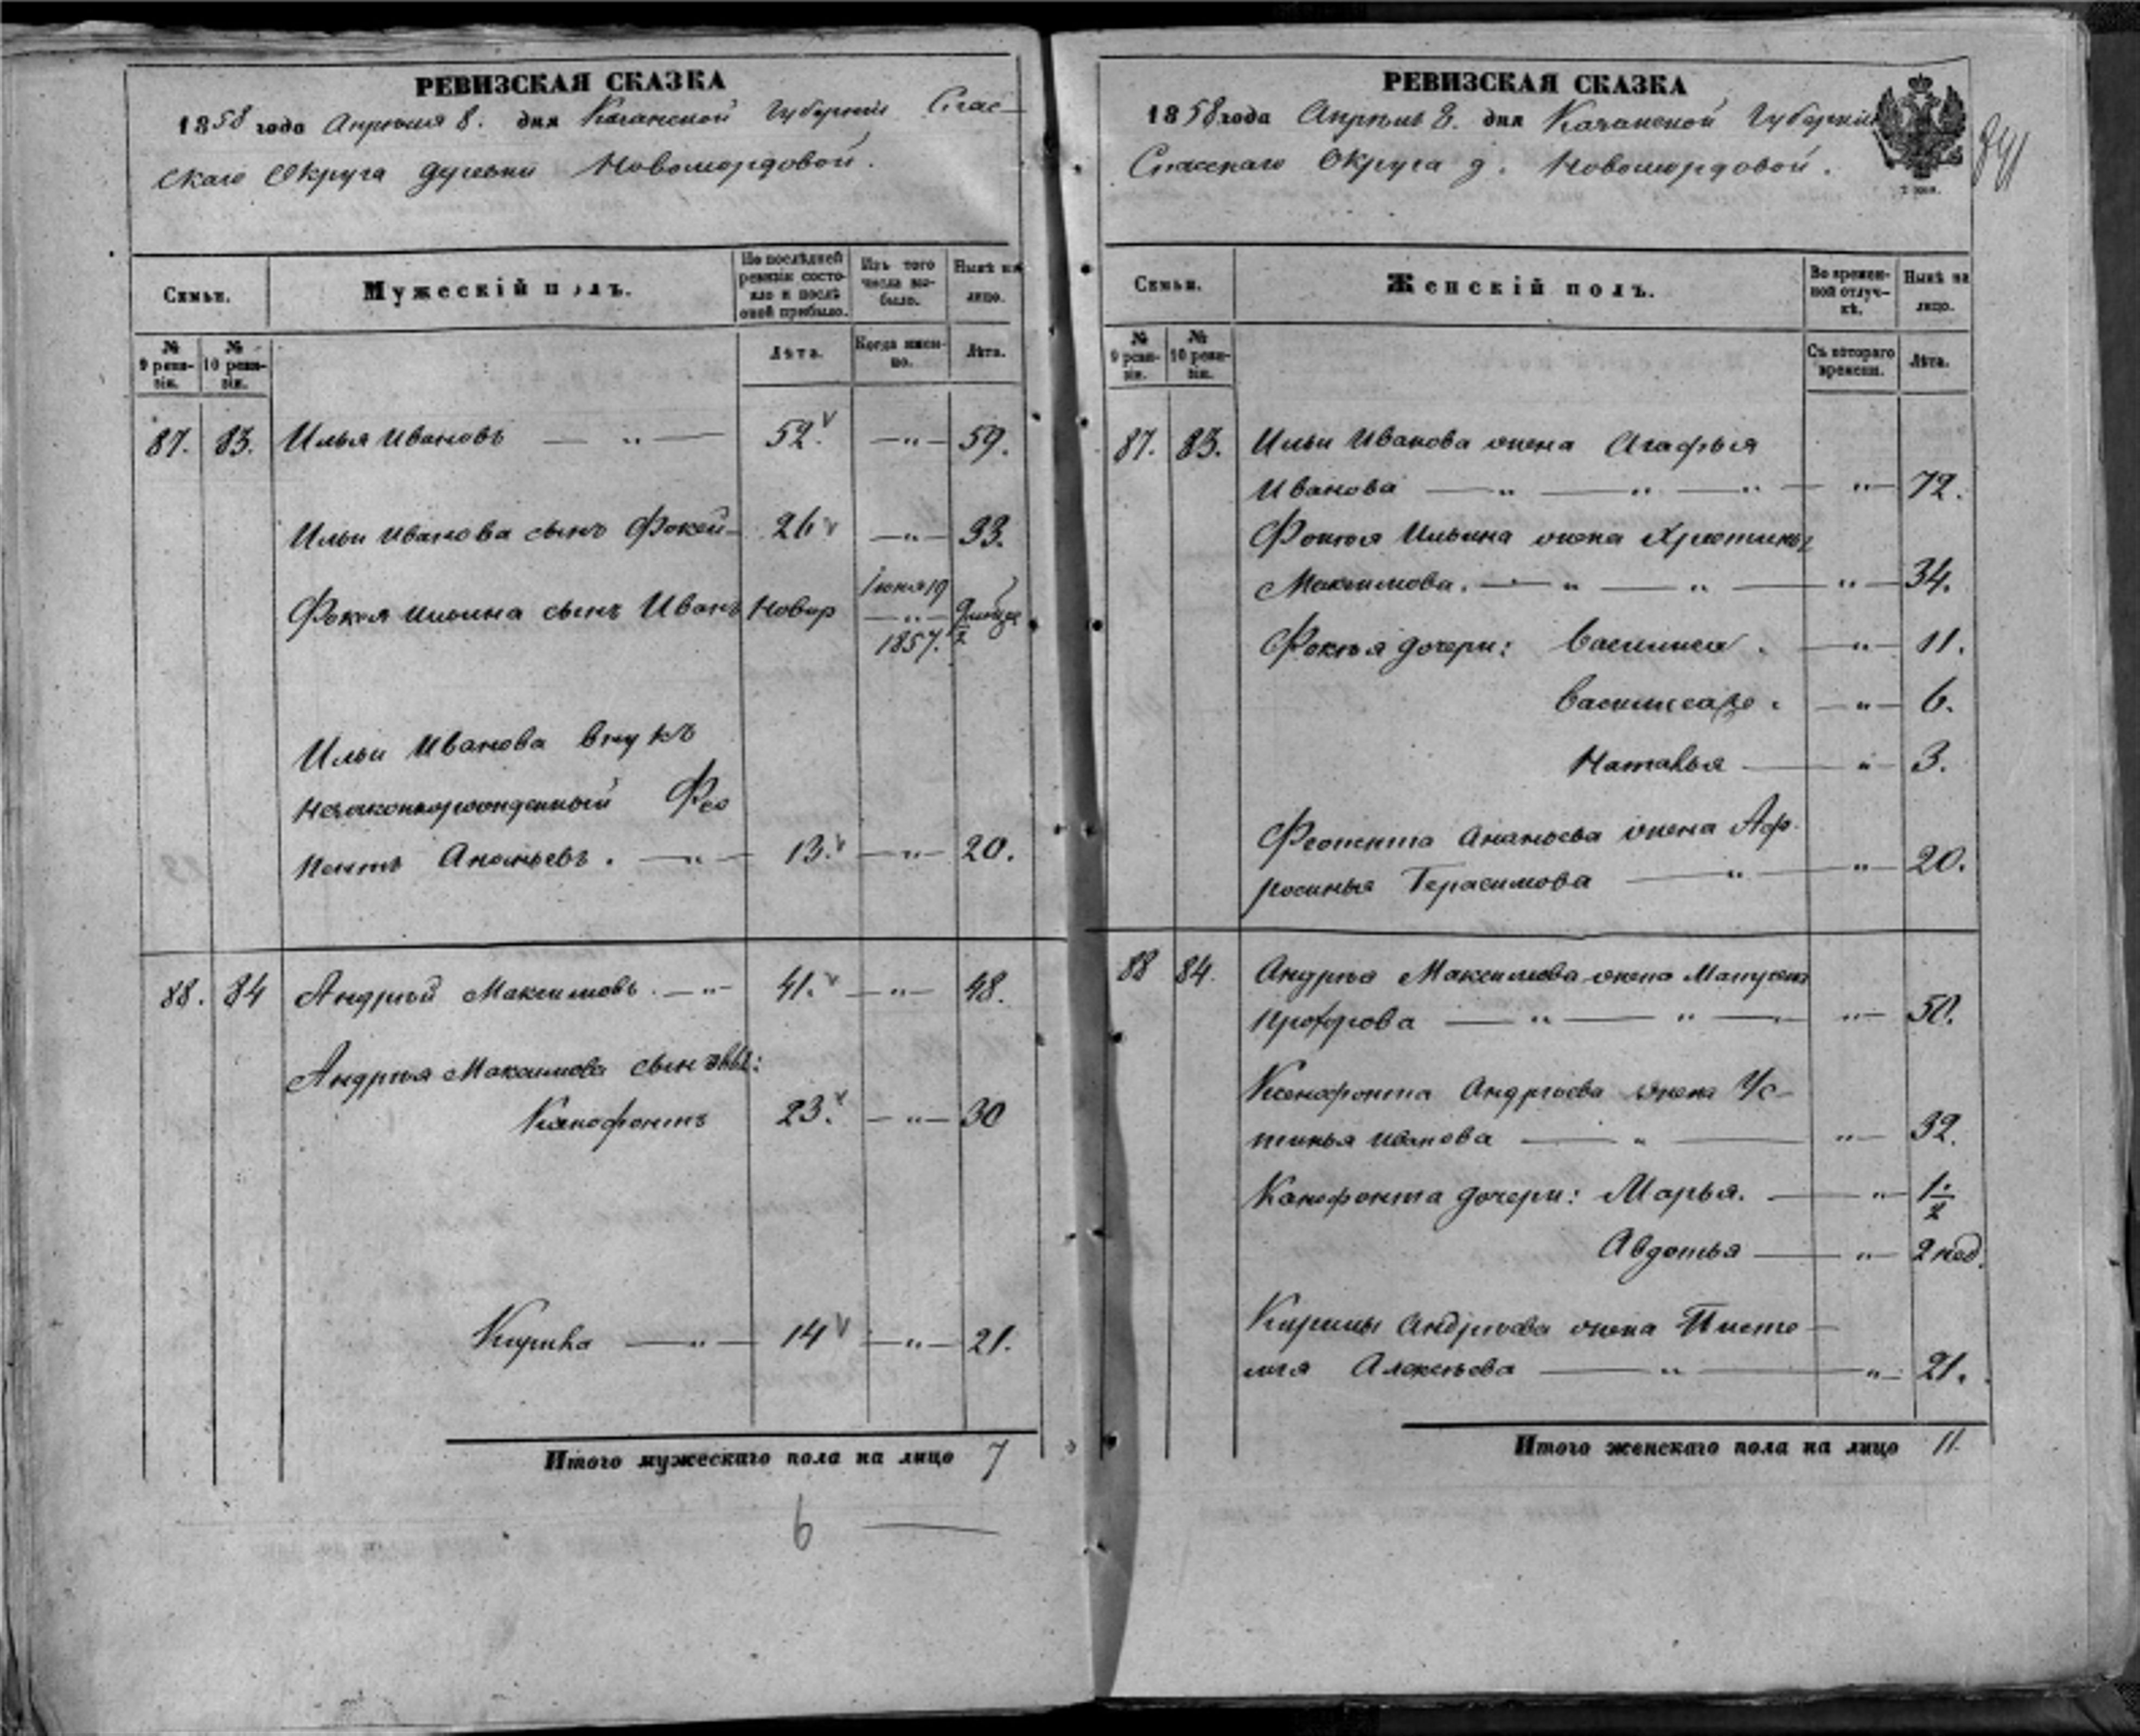 РЕВИЗСКАЯ СКАЗКА
1858 года Апреля 8. дня Казанской Губернии Спас-
скаго Округа деревни Новомордовой.
Семьи.
Мужескій полъ.
По послѣдней ревизіи состояло и послѣ оной прибыло.
Изъ того числа выбыло.
Нынѣ на лицо.
№ 9 ревизіи.
№ 10 ревизіи.
Лѣта.
Когда именно.
Лѣта.
87. 83. Илья Ивановъ — „ — 52. — „ — 59.
Ильи Иванова сынъ Фокей — 26 — „ — 33.
Іюня 19
Фокея Ильина сынъ Иванъ Новор — „ —
1857.
Ильи Иванова внукъ
незаконнорожденный Фео
пентъ Ананьевъ. — „ — 13. — „ — 20.
88. 84 Андрей Максимовъ. — „ 41. — „ — 48.
Андрея Максимова сыновья:
Ксенофонтъ 23. — „ — 30
Кирила — „ — 14 — „ — 21.
Итого мужескаго пола на лицо 7
6 —
РЕВИЗСКАЯ СКАЗКА
1858 года Апрѣля 8. дня Казанской Губерніи
Спасскаго Округа д. Новомордовой.
Семьи.
Женскій полъ.
Во временной отлучкѣ.
Нынѣ на лицо.
№ 9 ревизіи.
№ 10 ревизіи.
Съ котораго времени.
Лѣта.
87. 83. Ильи Иванова жена Агафья
Иванова — „ — „ — „ — „ — 72.
Фокея Ильина жена Христинья
Максимова. — „ — „ — „ — 34.
Фокея дочери: Василиса. — „ — 11.
— „ — 6.
Наталья — „ — 3.
Феопента Ананьева жена Аф-
росинья Герасимова — „ — „ — 20.
88 84. Андрея Максимова жена Матрена
Прохорова — „ — „ — „ — 50.
Ксенофонта Андреева жена Ус-
тинья Иванова — „ — „ — 32.
Ксенофонта дочери: Марья. — „ — 1/2
Авдотья — „ — 2 нед.
Кирилы Андреева жена Писте-
мия Алексеева — „ — „ — 21.
Итого женскаго пола на лицо 11.